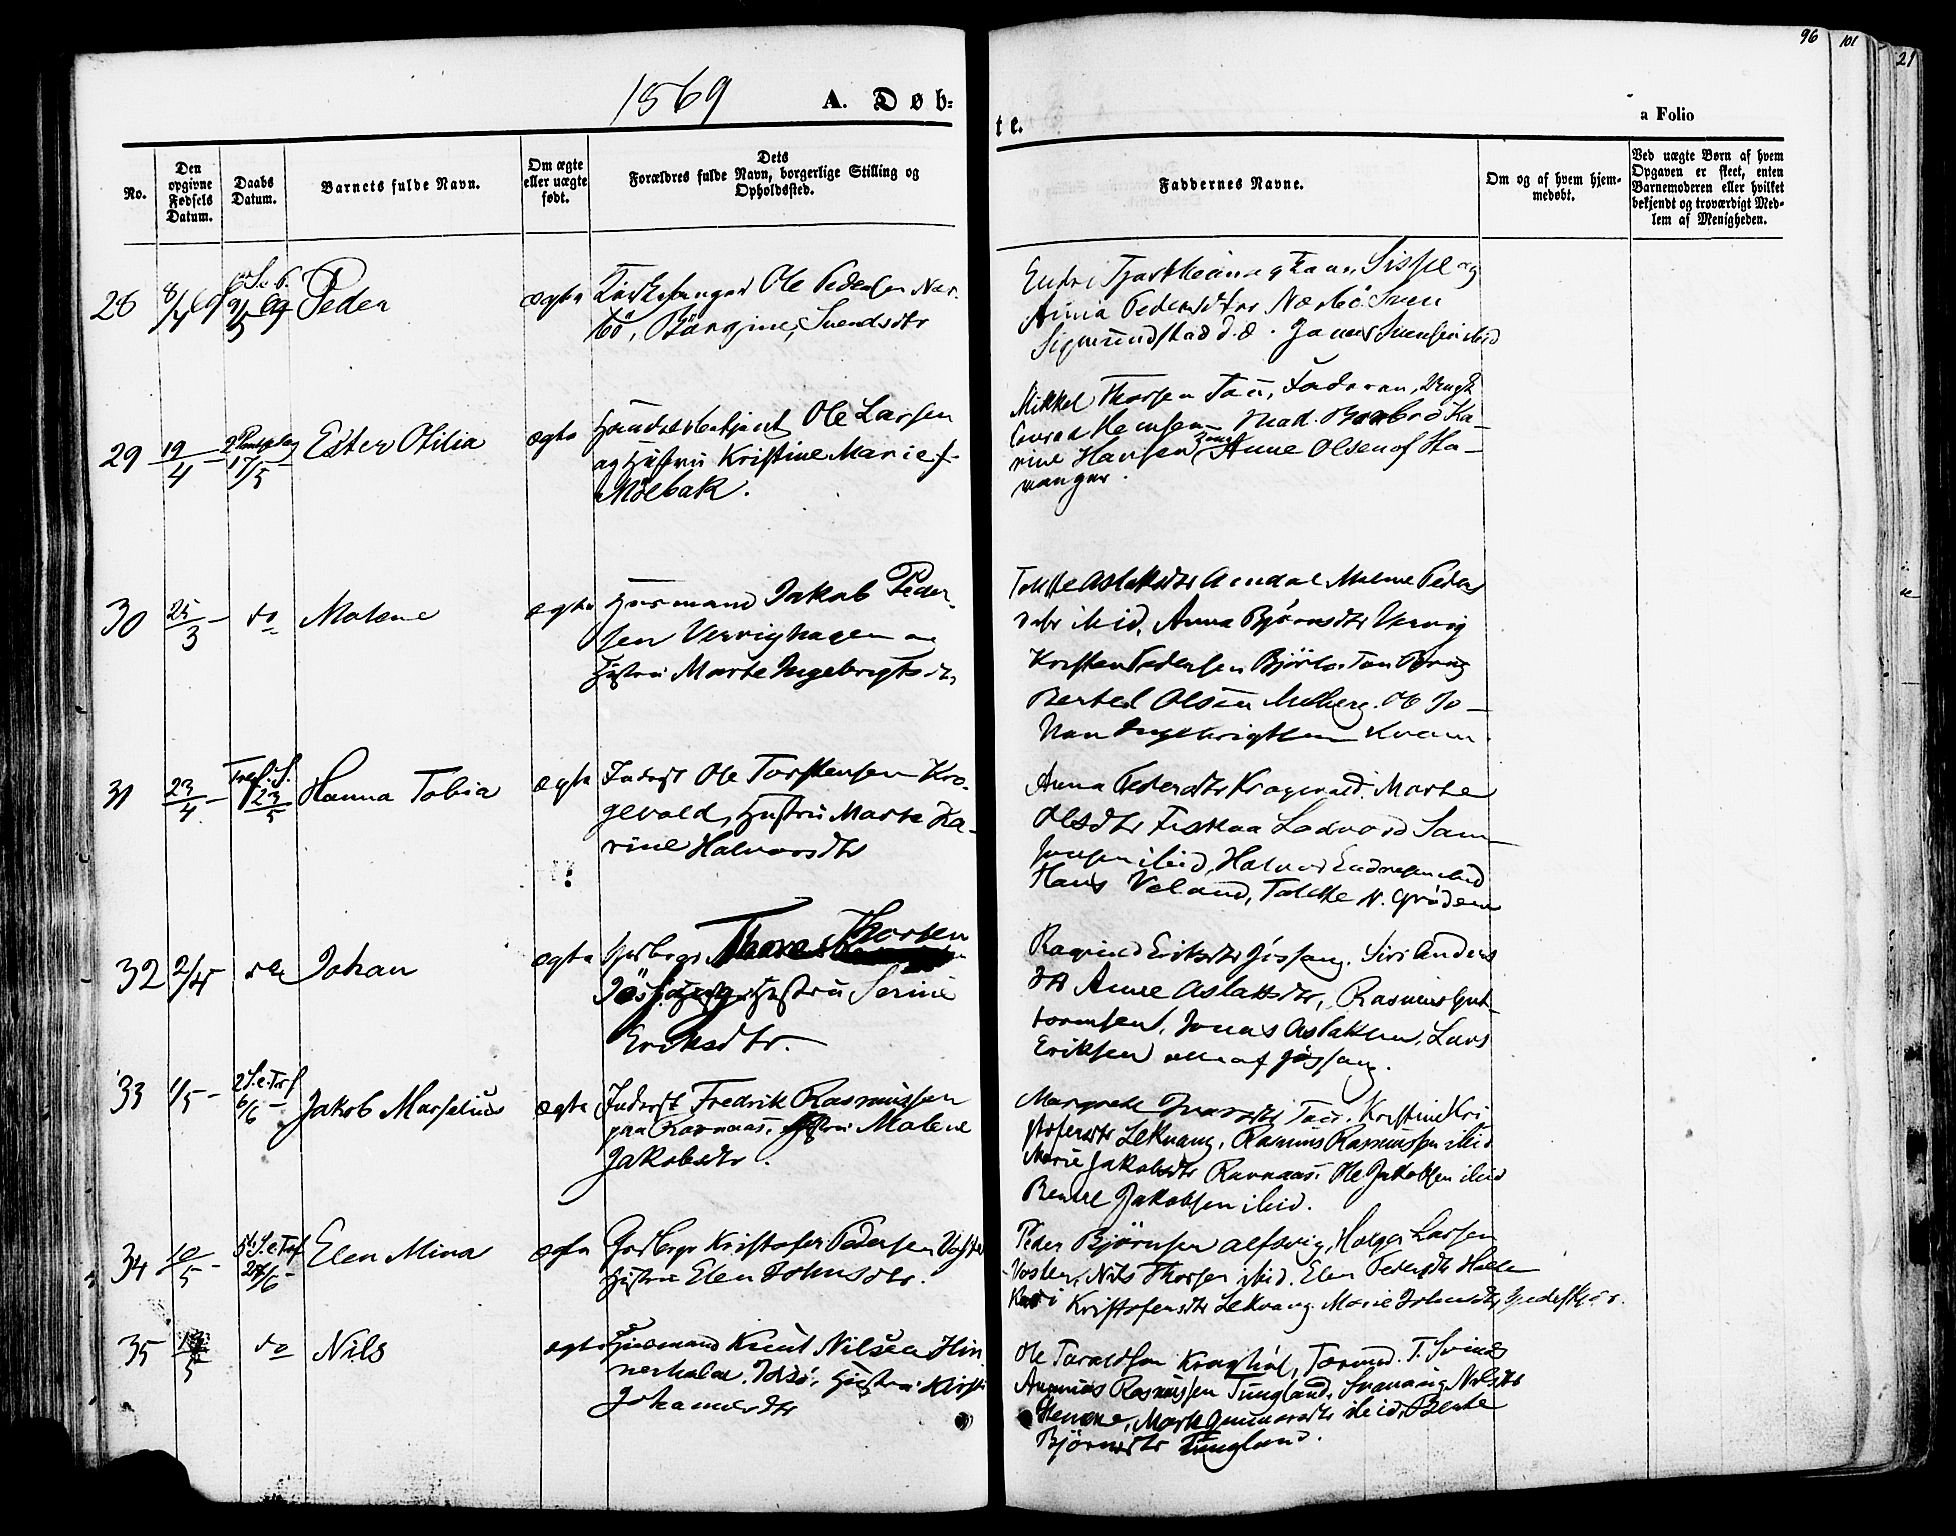 1869
A. Døb=
te.
a Folio
96
101
21
No.
Den opgivne Fødsels Datum.
Daabs Datum.
Barnets fulde Navn.
Om ægte eller uægte født.
Dets Forældres fulde Navn, borgerlige Stilling og Opholdssted.
Faddernes Navne.
Om og af hvem hjem-medøbt.
Ved uægte Børn af hvem Opgaven er skeet, enten Barnemoderen eller hvilket bekjendt og troværdigt Med-lem af Menigheden.
28 8/4 69 9/5 69 Peder ægte Kirkesanger Ole Pedersen Nær-
bö, Börgine Svendsdtr
Sissel og
Anna Pedersdtr Nærbö. Sven
Sigmundstad d.æ. Janes Svensen ibid
29 19/4 17/5 Ester Otilia ægte Handelsbetjent Ole Larsen
og Hustru Kristine Marie f.
Mölbak.
Mikkel Thorsen Tau, Faderen,
Conrad Hansen Mad. Barbro Ka-
rine Hansen Anne Olsen af Sta-
vanger.
30 25/3 do Malene ægte Husmand Jakob Peder-
sen Vervighagen og
Hustru Marte Ingebrigtsdtr
Tolette Aslaksdtr Malene Peders
datr ibid, Anna Björnsdtr Vervig
Kristen Pedersen
Bertel Olsen Melberg. og Jo-
han Ingebrigtsen Kvam
31 23/4 23/5 Hanna Tobia ægte Inderst Ole Torstensen Kro-
gevold, Hustru Marta Ka-
rine Halvorsdtr
Anna Pedersdtr Kragevold. Marte
Olsdtr Fiskaa Ledvard Sam-
ibid, Halvor Endresen ibid
Hans Voland, Tolette N. Gröden
32 2/4 do Johan ægte Thorsen
Jösang Hustru Serine
Eriksdtr.
Ragnild Eriksdtr Jössang. Siri Anders
dtr Anne Aslaksdtr, Rasmus Gut-
tormsen, Jonas Aslaksen, Lars
Eriksen alle af Jössang.
33 1/5 2 S.e.Tref 6/6 Jakob Marselius ægte Inderst Fredrik Rasmussen
paa Ravnaas. Hustru Malene
Jakobsdtr.
Margrete Ivarsdtr Tau. Kristine Kri
stofersdtr Lekvang, Rasmus Rasmussen ibid
Marie Jakobsdtr Ravnaas. Ole Jakobsen ibid
Jakobsen ibid.
34 10/5 S.e.Tref /6 Elen Mina ægte Gaardbrgr Kristofer Pedersen Voster
Hustru Elen Johnsdtr.
Peder Björnsen Alfsvig, Holger Larsen
Voster, Nils Thorsen ibid. Elen Pedersdtr Halle
Kari Kristofersdtr Lekvang. Marie Johnsdtr
35 /5 do Nils ægte Husmand Knut Nilsen Hin-
nerholm. Idsö, Hustru Kirsti
Johannesdtr
Ole Taraldsen Kraghöl, Tormod. T. Svines
Ananias Rasmussen Tungland, Nilsdtr
Marte Gunnarsdtr ibid. Berte
Björnsdtr Tungland.